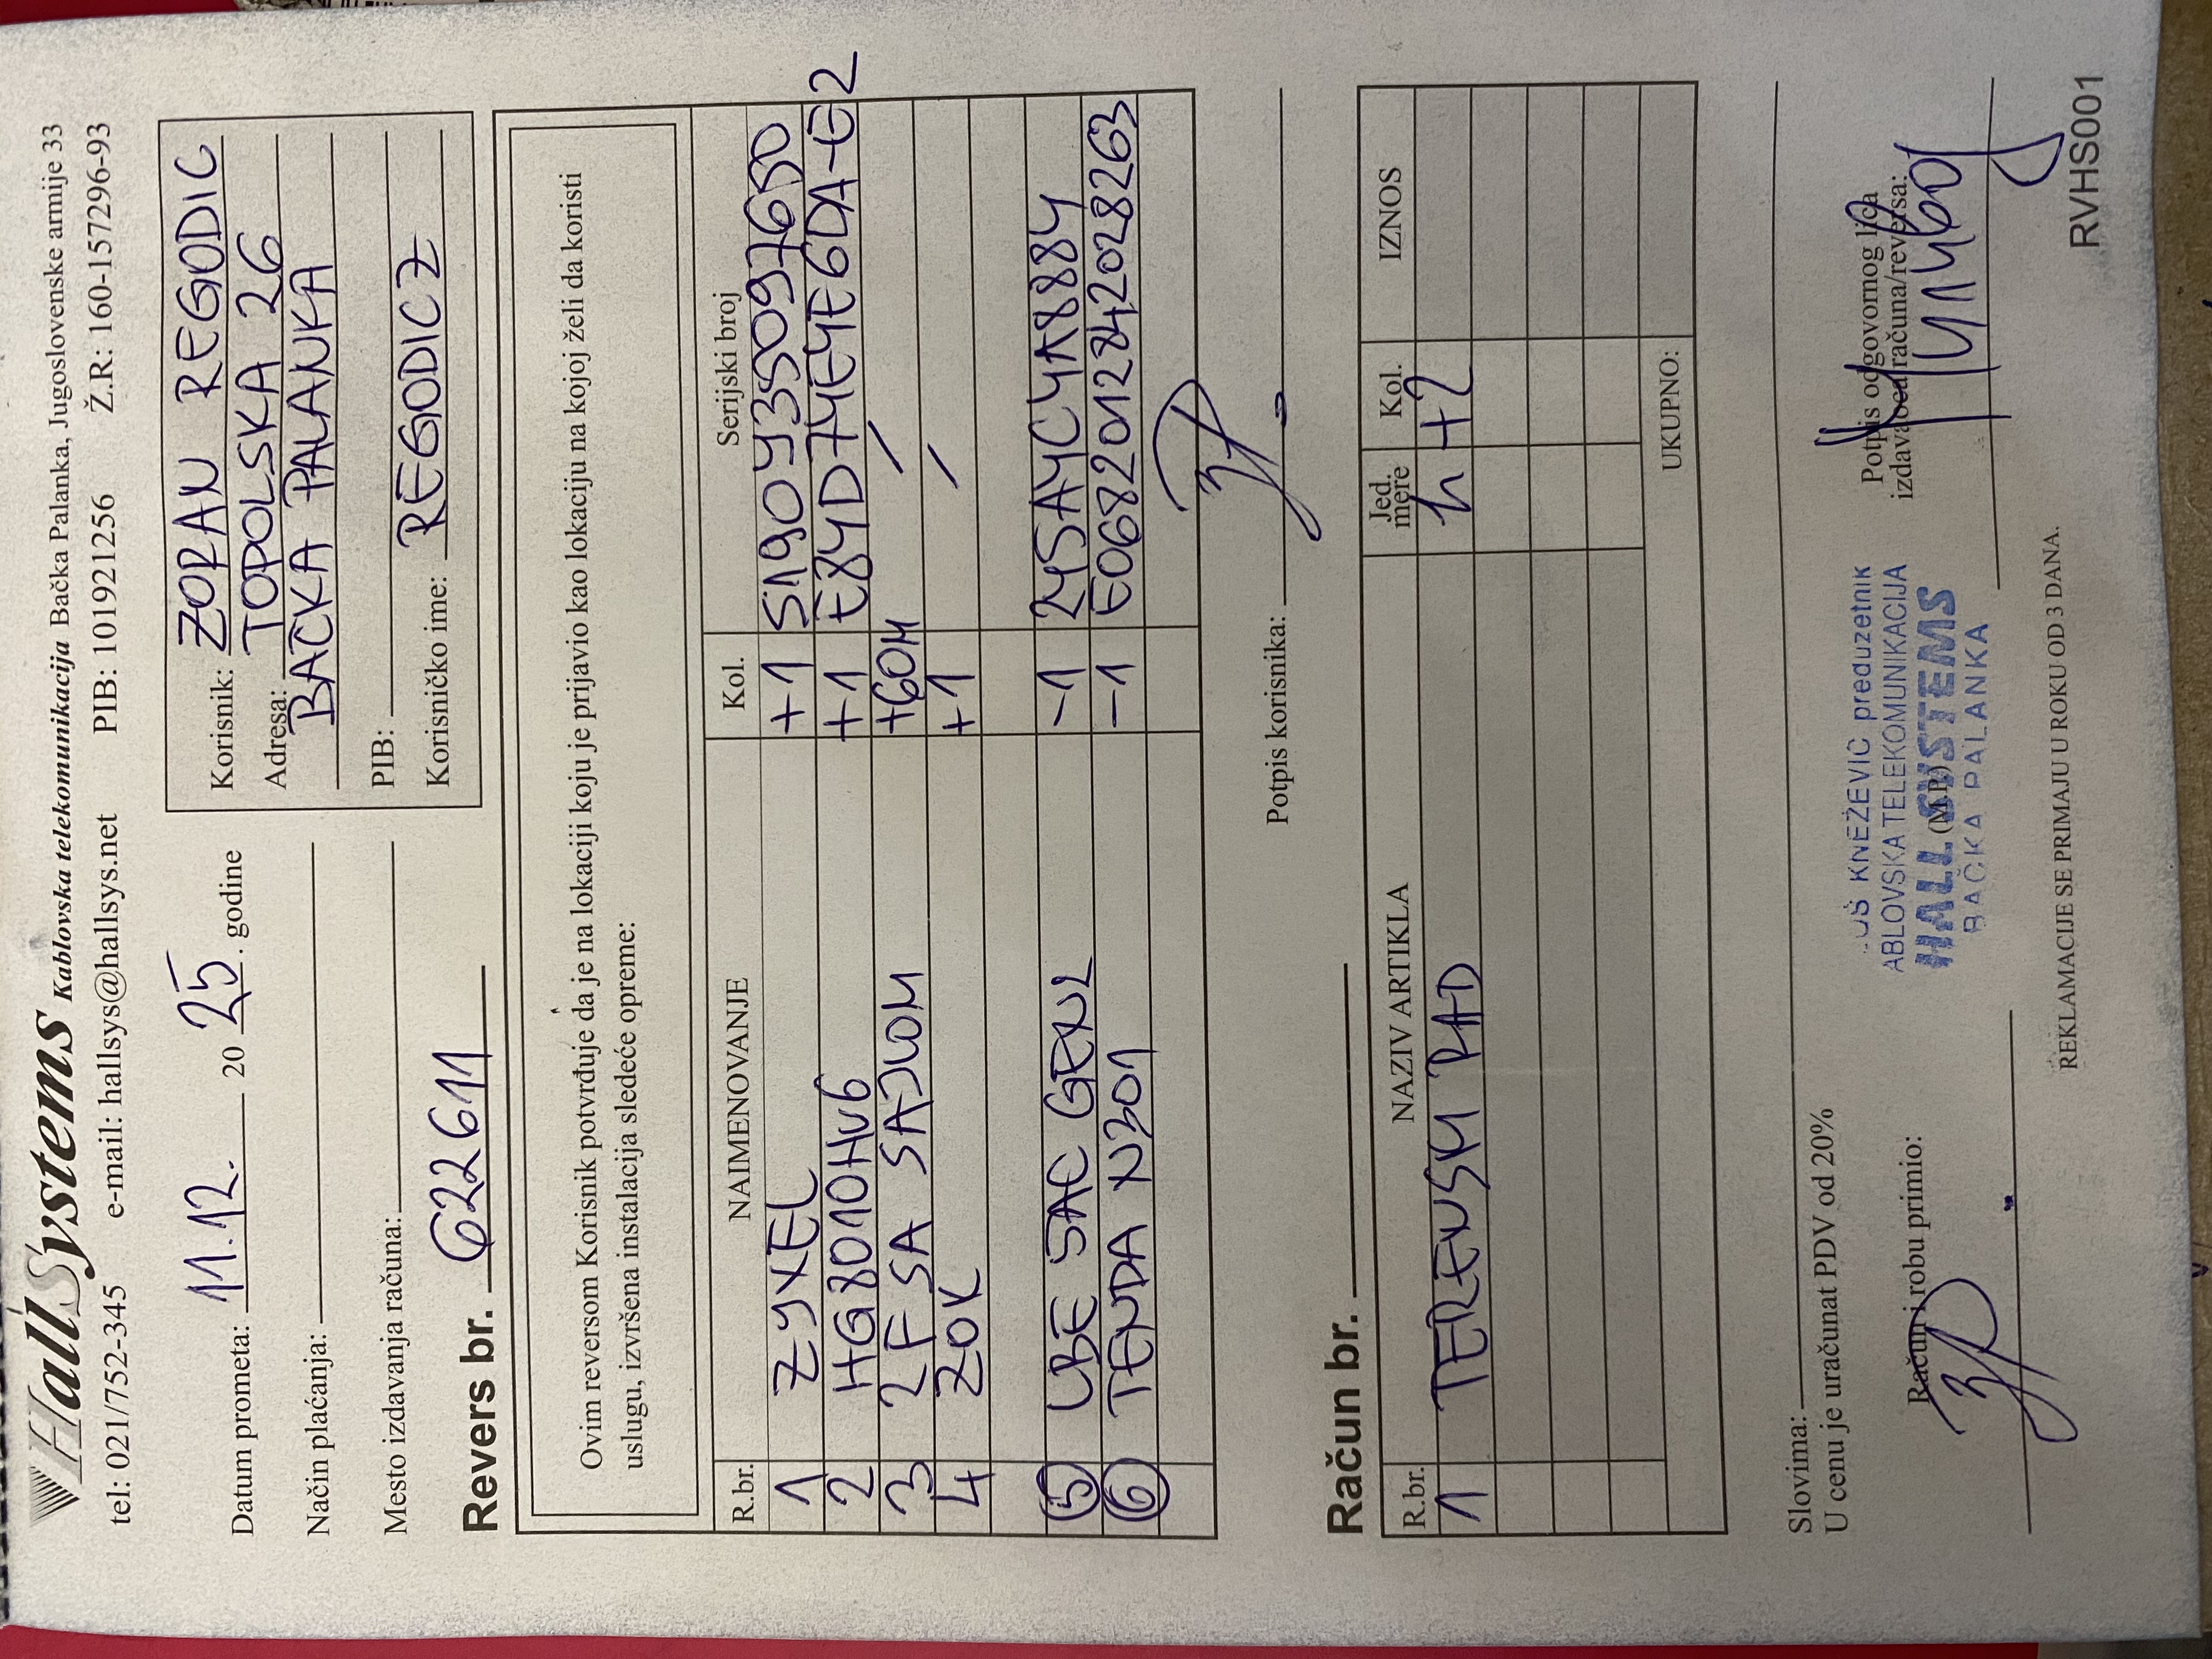 HallSystems Kablovska telekomunikacija Bačka Palanka, Jugoslovenske armije 33
tel: 021/752-345 e-mail: hallsys@hallsys.net PIB: 101921256 Ž.R: 160-157296-93
Datum prometa: 11.12. 2025. godine
Način plaćanja:
Mesto izdavanja računa:
Korisnik: ZORAN REGODIC
Adresa: TOPOLSKA 26
BAČKA PALANKA
PIB:
Korisničko ime: REGODICZ
Revers br. 622611
Ovim reversom Korisnik potvrđuje da je na lokaciji koju je prijavio kao lokaciju na kojoj želi da koristi
uslugu, izvršena instalacija sledeće opreme:
R.br. NAIMENOVANJE Kol. Serijski broj
1 ZYXEL +1 S190Y35097650
2 HG8010HV6 +1 E84D74E4E6DA-E2
3 2F SA SAJLOM +60M /
4 ZOK +1 /
5 LBE 5AC GEN2 -1 245A4C4A8884
6 TENDA N301 -1 E0682012242028263
Potpis korisnika:
Račun br.
R.br. NAZIV ARTIKLA Jed. mere Kol. IZNOS
1 TERENSKI RAD h +2
UKUPNO:
Slovima:
U cenu je uračunat PDV od 20%
Račun i robu primio:
KNEŽEVIĆ preduzetnik
ABLOVSKA TELEKOMUNIKACIJA
HALL SYSTEMS
BAČKA PALANKA
(M.P.)
Potpis odgovornog lica
izdavaoca računa/reversa:
REKLAMACIJE SE PRIMAJU U ROKU OD 3 DANA.
RVHS001